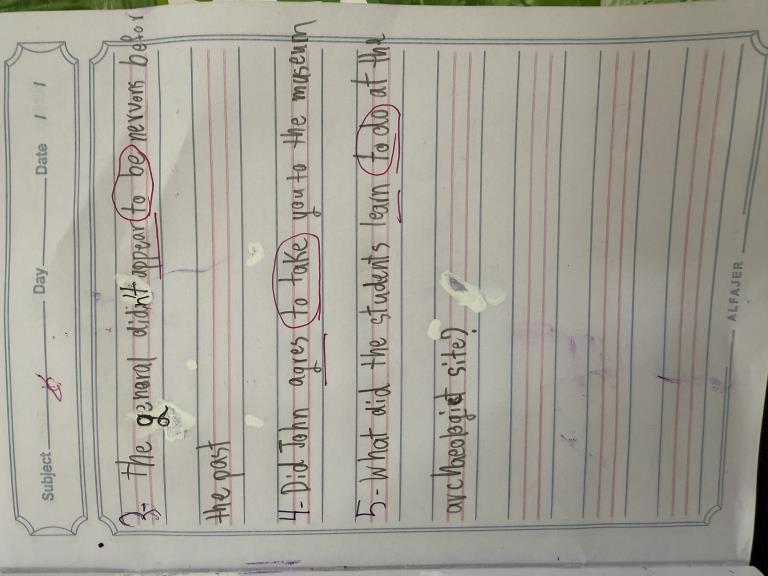 Subject Day Date / /
3- the general didn't appear to be nervous befor
the past
4- Did John agres to take you to the museum
5- What did the students learn to do at the
archaeologist site?
ALFAJER